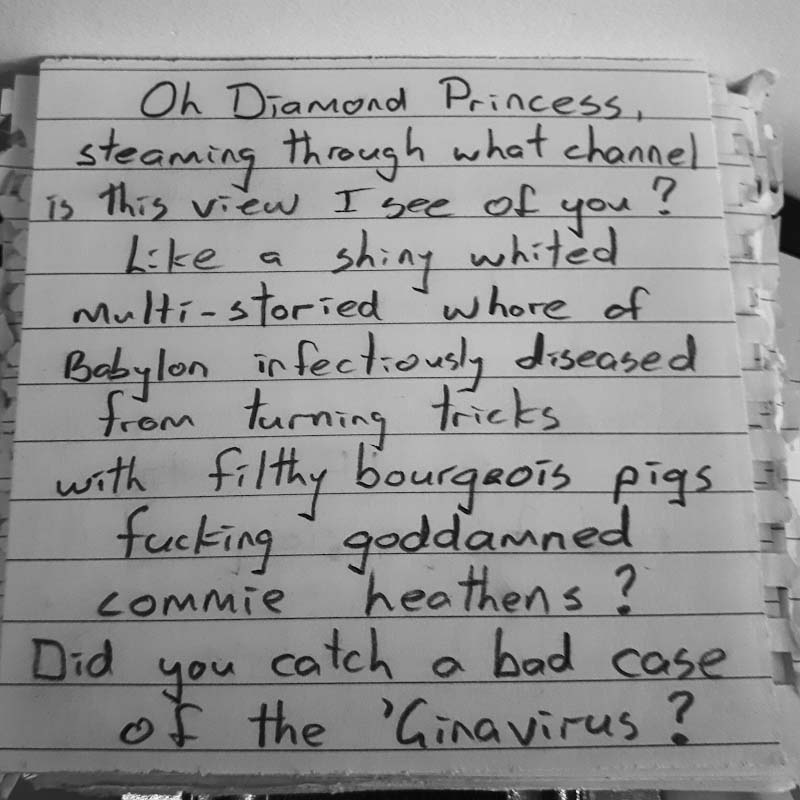 Oh Diamond Princess,
steaming through what channel
is this view I see of you?
Like a shiny whited
multi-storied whore of
Babylon infectiously diseased
from turning tricks
with filthy bourgeois pigs
fucking goddamned
commie heathens?
Did you catch a bad case
of the 'Ginavirus?